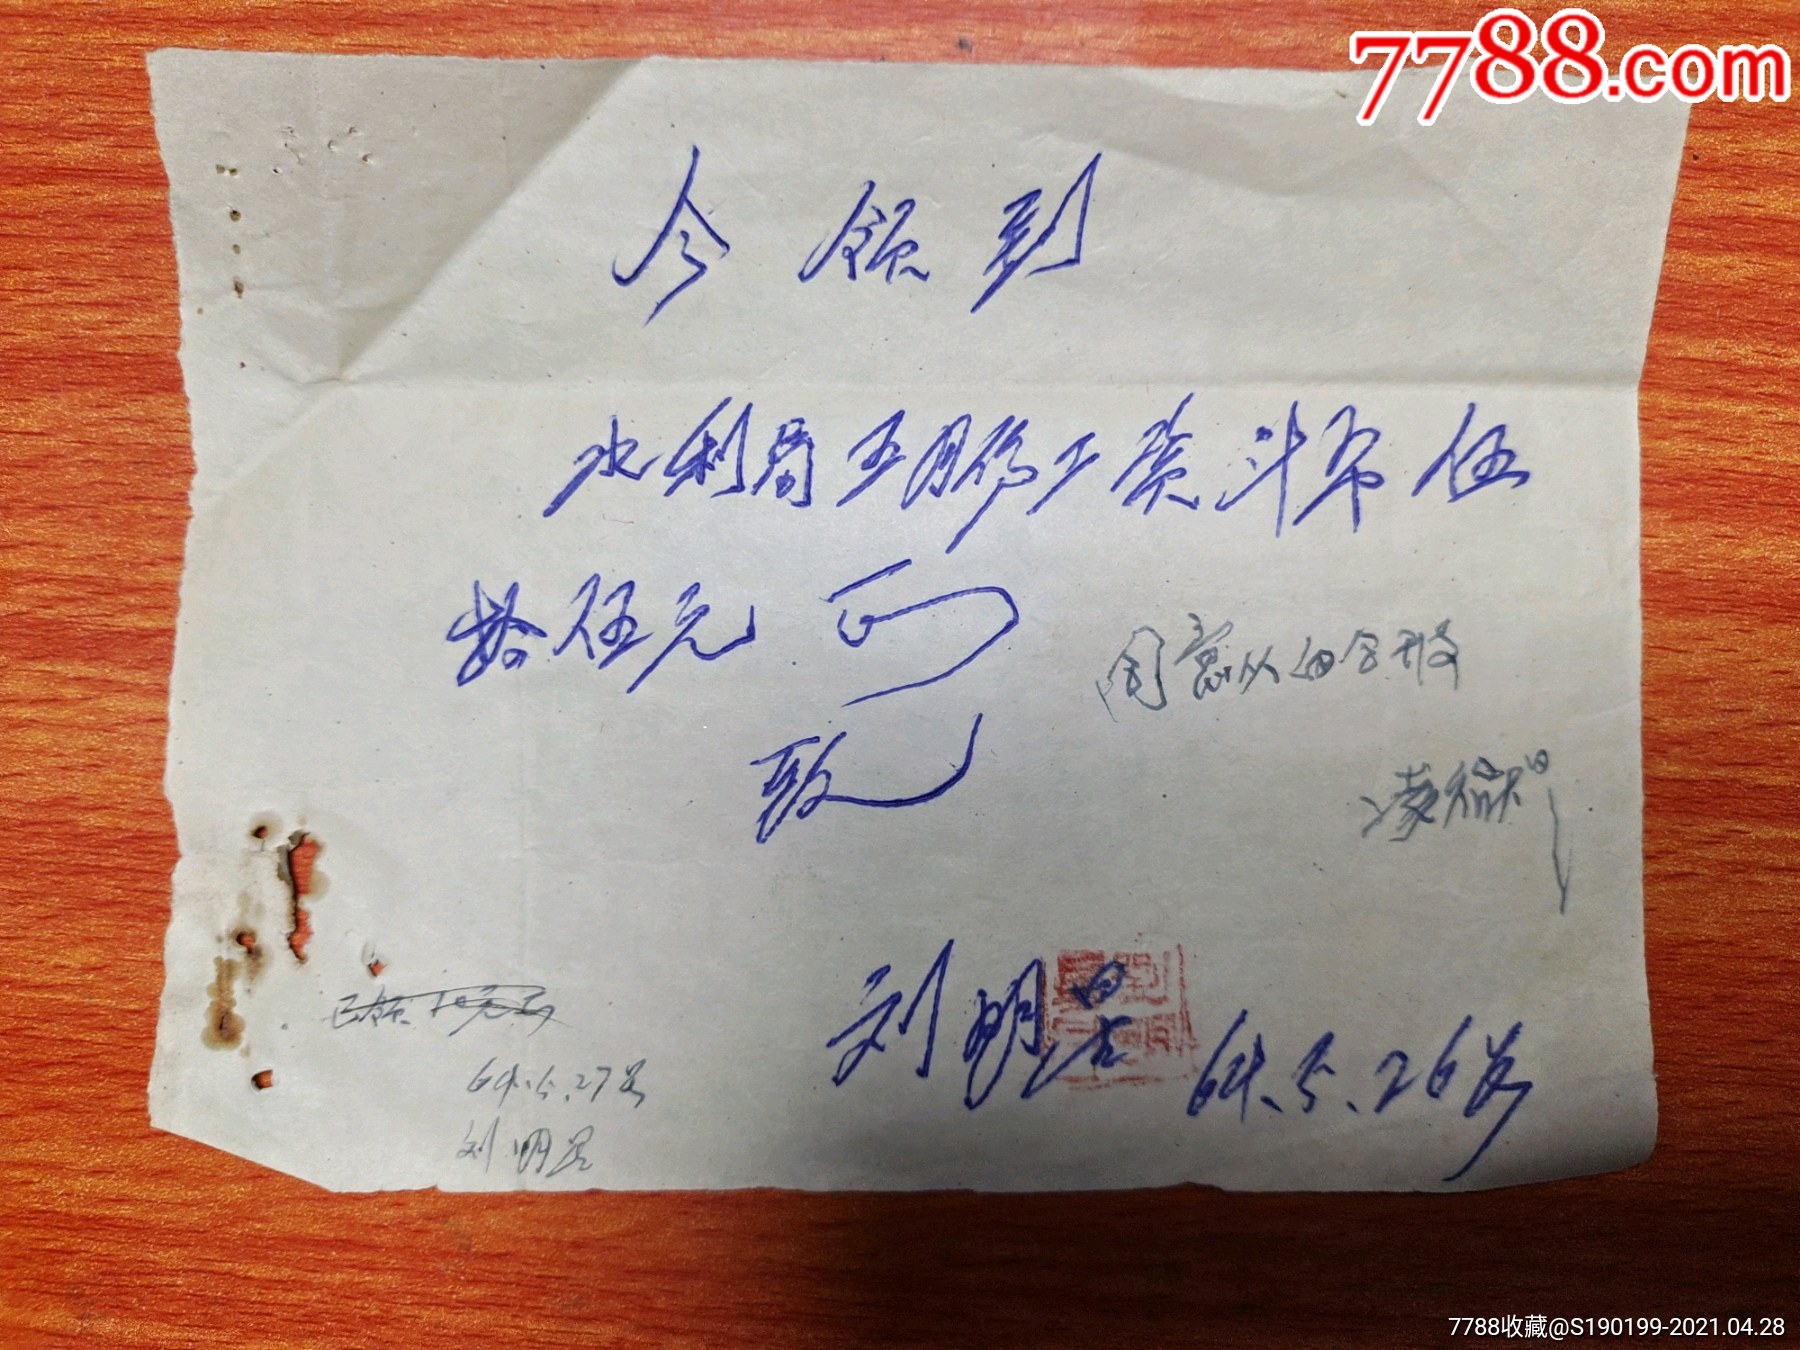 7788.com
今领到
水利局五月份工资人币伍
拾伍元正
致
同意从由会形
刘明星 64.5.26号
已领
64.5.27号
刘明星
7788收藏@S190199-2021.04.28